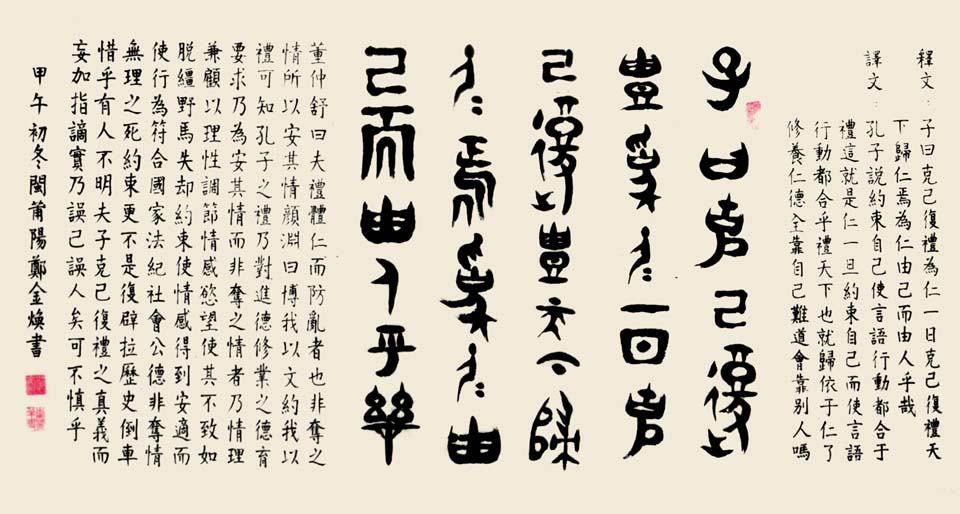 釋文:子曰克己復禮為仁一日克己復禮天
下歸仁焉為仁由己而由人乎哉
譯文:孔子説約束自己使言語行動都合于
禮這就是仁一旦約束自己而使言語
行動都合乎禮天下也就歸依于仁了
修養仁德全靠自己難道會靠別人嗎
子曰克己復
豊為仁一日克
己復豊天下歸
仁焉為仁由
己而由人乎哉
董仲舒曰夫禮體仁而防亂者也非奪之
情所以安其情顔淵曰博我以文約我以
禮可知孔子之禮乃對進德修業之德育
要求乃為安其情而非奪之情者乃情理
兼顧以理性調節情感慾望使其不致如
脱繮野馬失却約束使情感得到安適而
使行為符合國家法紀社會公德非奪情
無理之死約束更不是復辟拉歷史倒車
惜乎有人不明夫子克己復禮之真義而
妄加指謫實乃誤己誤人矣可不慎乎
甲午初冬閩莆陽鄭金煥書